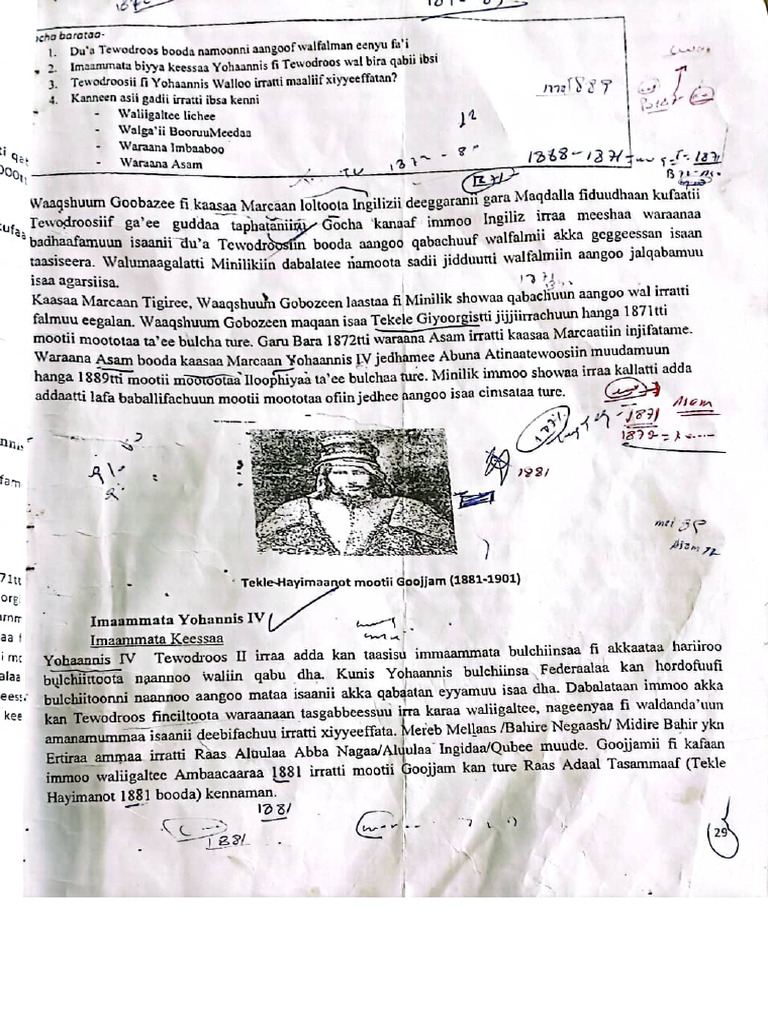 icha barataa-
1. Du'a Tewodroos booda namoonni aangoof walfalman eenyu fa'i
2. Imaammata biyya keessaa Yohaannis fi Tewodroos wal bira qabii ibsi
3. Tewodroosii fi Yohaannis Walloo irratti maaliif xiyyeeffatan?
4. Kanneen asii gadii irratti ibsa kenni
- Waliigaltee lichee
- Walga'ii BooruuMeedaa
- Waraana Imbaaboo
- Waraana Asam
1889
12
1868-1871
1871
1871
Waaqshuum Goobazee fi kaasaa Marcaan loltoota Ingilizii deeggaranii gara Maqdalla fiduudhaan kufaatii
Tewodroosiif ga'ee guddaa taphataniiru Gocha kanaaf immoo Ingiliz irraa meeshaa waraanaa
badhaafamuun isaanii du'a Tewodroosiin booda aangoo qabachuuf walfalmii akka geggeessan isaan
taasiseera. Walumaagalatti Minilikiin dabalatee namoota sadii jidduutti walfalmiin aangoo jalqabamuu
isaa agarsiisa.
1871
Kaasaa Marcaan Tigiree, Waaqshuum Gobozeen laastaa fi Minilik showaa qabachuun aangoo wal irratti
falmuu eegalan. Waaqshuum Gobozeen maqaan isaa Tekele Giyoorgistti jijjiirrachuun hanga 1871tti
mootii moototaa ta'ee bulcha ture. Garu Bara 1872tti waraana Asam irratti kaasaa Marcaatiin injifatame.
Waraana Asam booda kaasaa Marcaan Yohaannis IV jedhamee Abuna Atinaatewoosiin muudamuun
hanga 1889tti mootii mootootaa Iloophiyaa ta'ee bulchaa ture. Minilik immoo showaa irraa kallatti adda
addaatti lafa baballifachuun mootii moototaa ofiin jedhee aangoo isaa cimsataa ture.
Asam
1871
1871
1872
1881
Asam 72
Tekle-Hayimaanot mootii Goojjam (1881-1901)
Imaammata Yohannis IV
Imaammata Keessaa
Yohaannis IV Tewodroos II irraa adda kan taasisu immaammata bulchiinsaa fi akkaataa hariiroo
bulchiittoota naannoo waliin qabu dha. Kunis Yohaannis bulchiinsa Federaalaa kan hordofuufi
bulchitoonni naannoo aangoo mataa isaanii akka qabaatan eyyamuu isaa dha. Dabalataan immoo akka
kan Tewodroos finciltoota waraanaan tasgabbeessuu irra karaa waliigaltee, nageenyaa fi waldanda'uun
amanamummaa isaanii deebifachuu irratti xiyyeeffata. Mereb Mellaas /Bahire Negaash/ Midire Bahir ykn
Ertiraa ammaa irratti Raas Aluulaa Abba Nagaa/Aluulaa Ingidaa/Qubee muude. Goojjamii fi kafaan
immoo waliigaltee Ambaacaaraa 1881 irratti mootii Goojjam kan ture Raas Adaal Tasammaaf (Tekle
Hayimanot 1881 booda) kennaman.
1881
1881
29